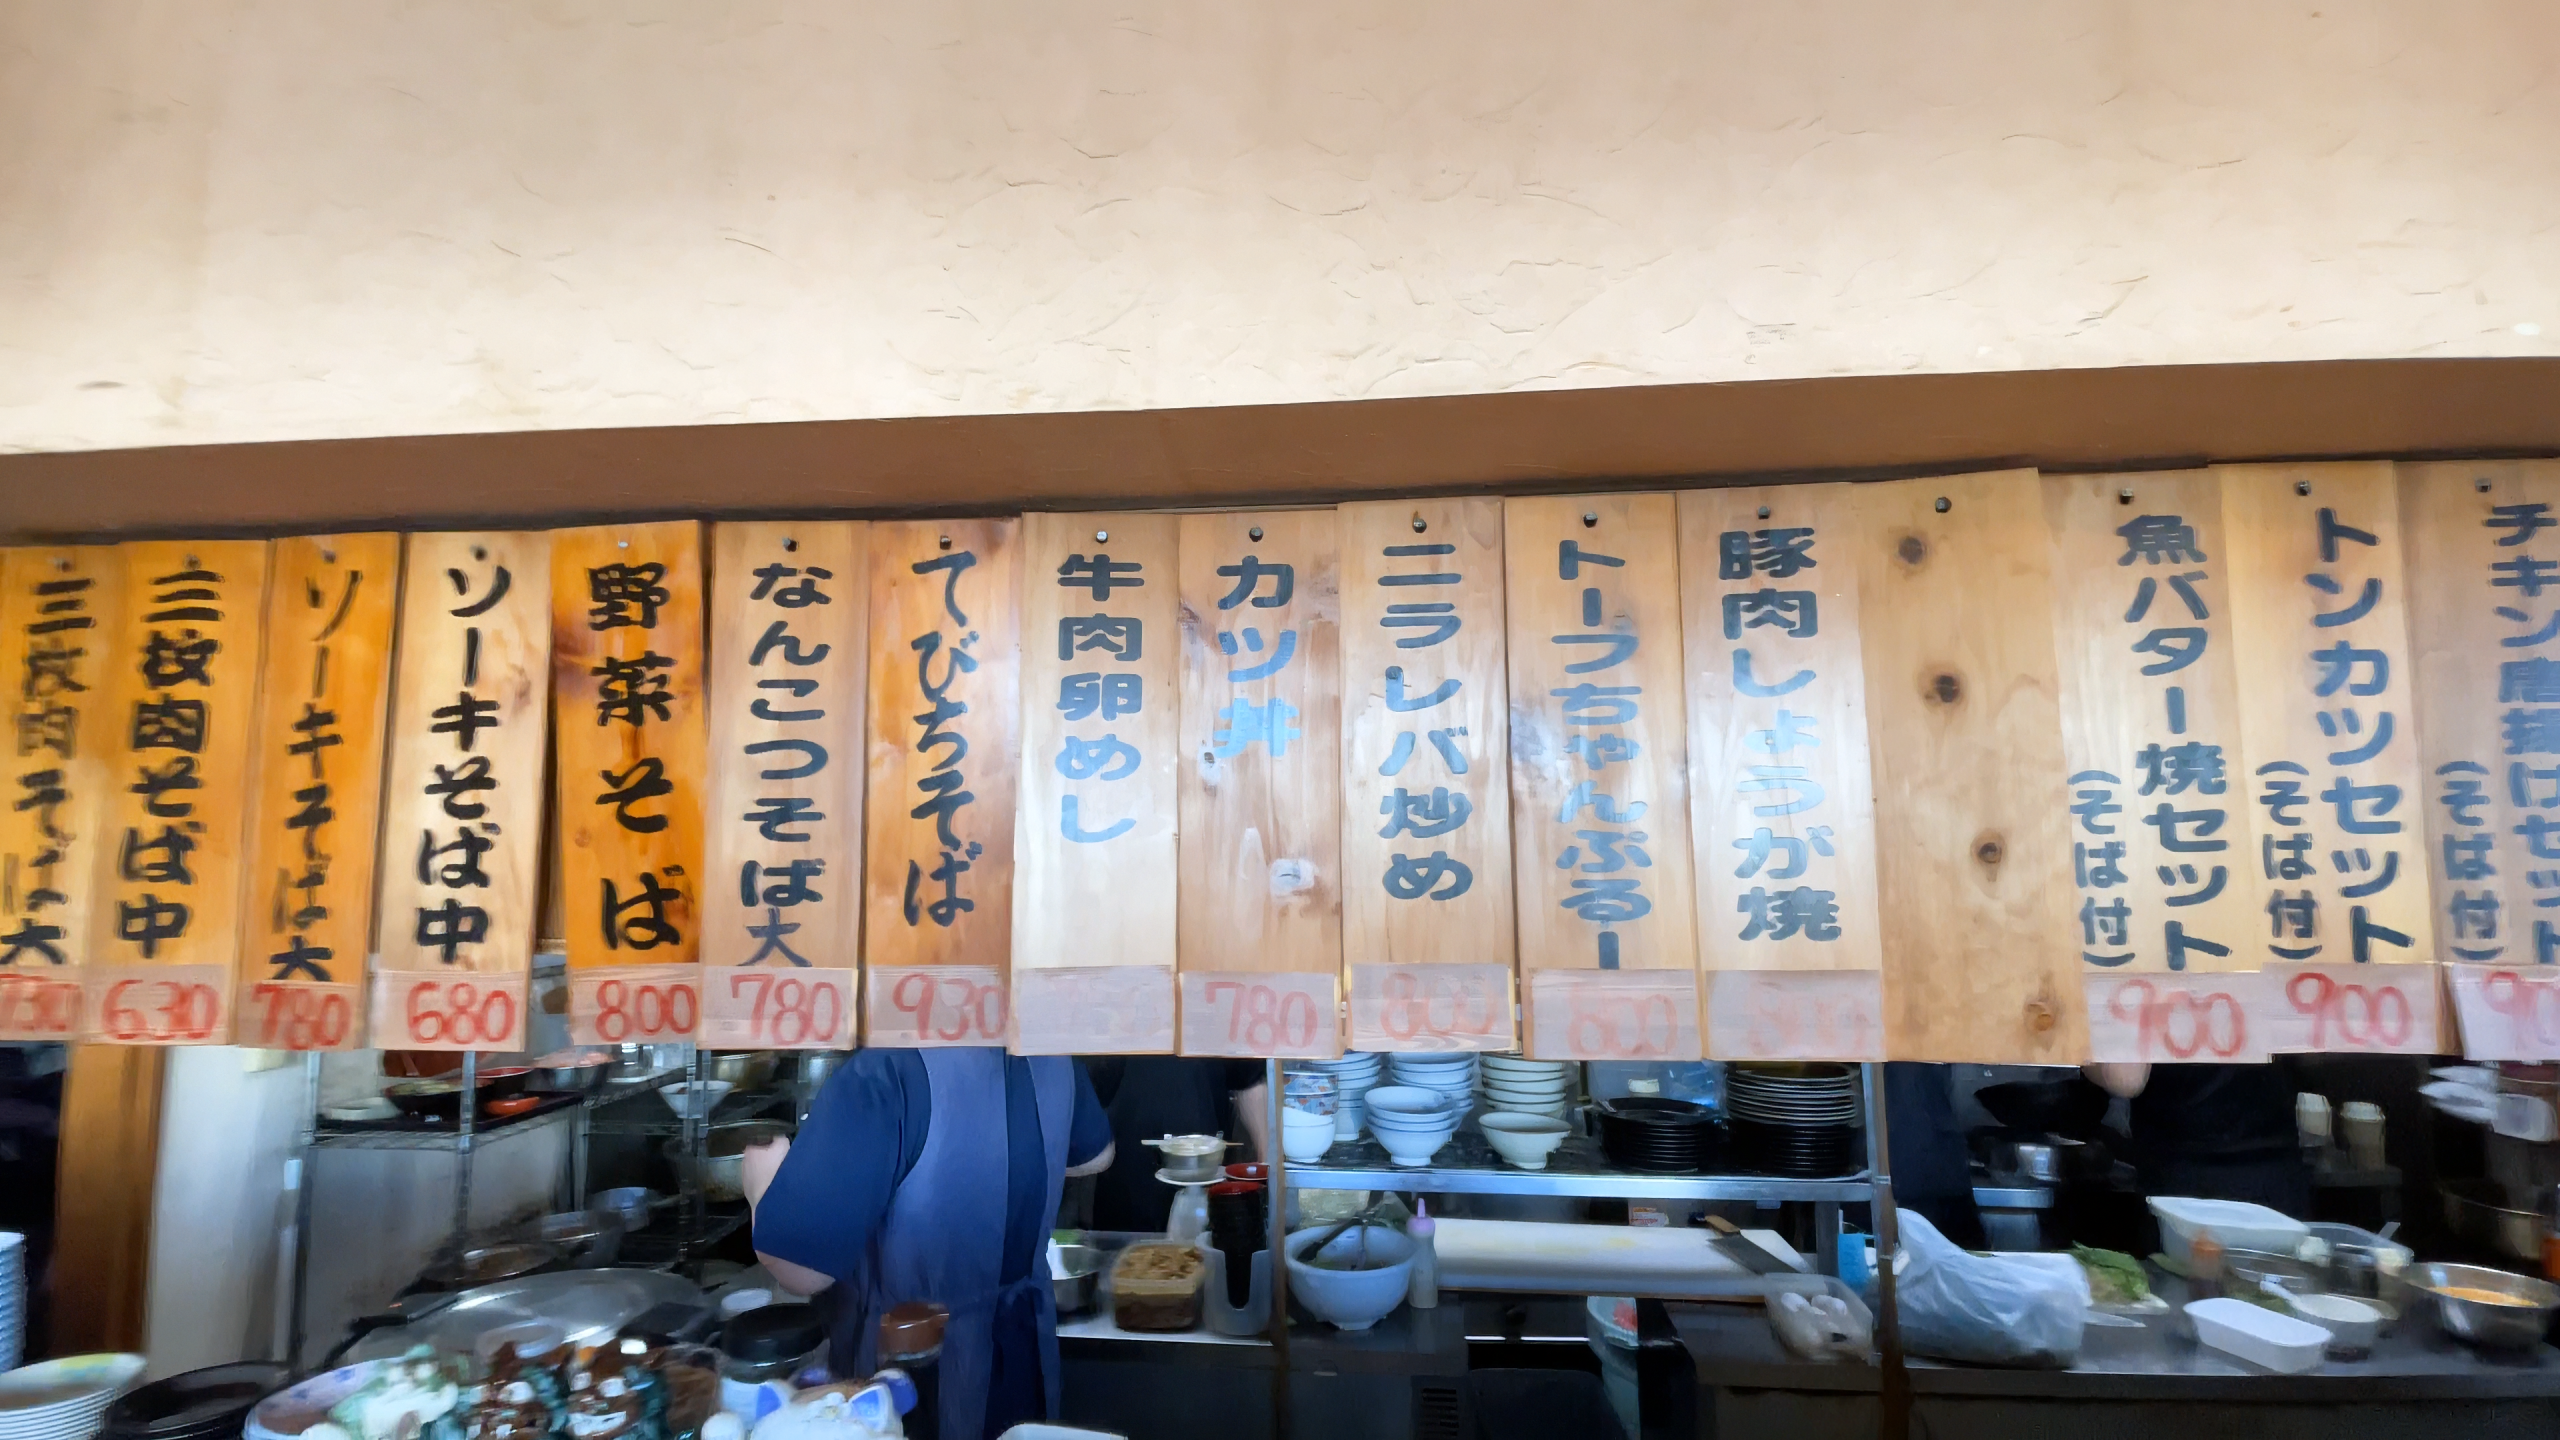 三枚肉そば大
730
三枚肉そば中
630
ソーキそば大
780
ソーキそば中
680
野菜そば
800
なんこつそば大
780
てびちそば
930
牛肉卵めし
カツ丼
780
ニラレバ炒め
800
トーフちゃんぷるー
800
豚肉しょうが焼
魚バター焼セット
(そば付)
900
トンカツセット
(そば付)
900
チキン唐揚げセット
(そば付)